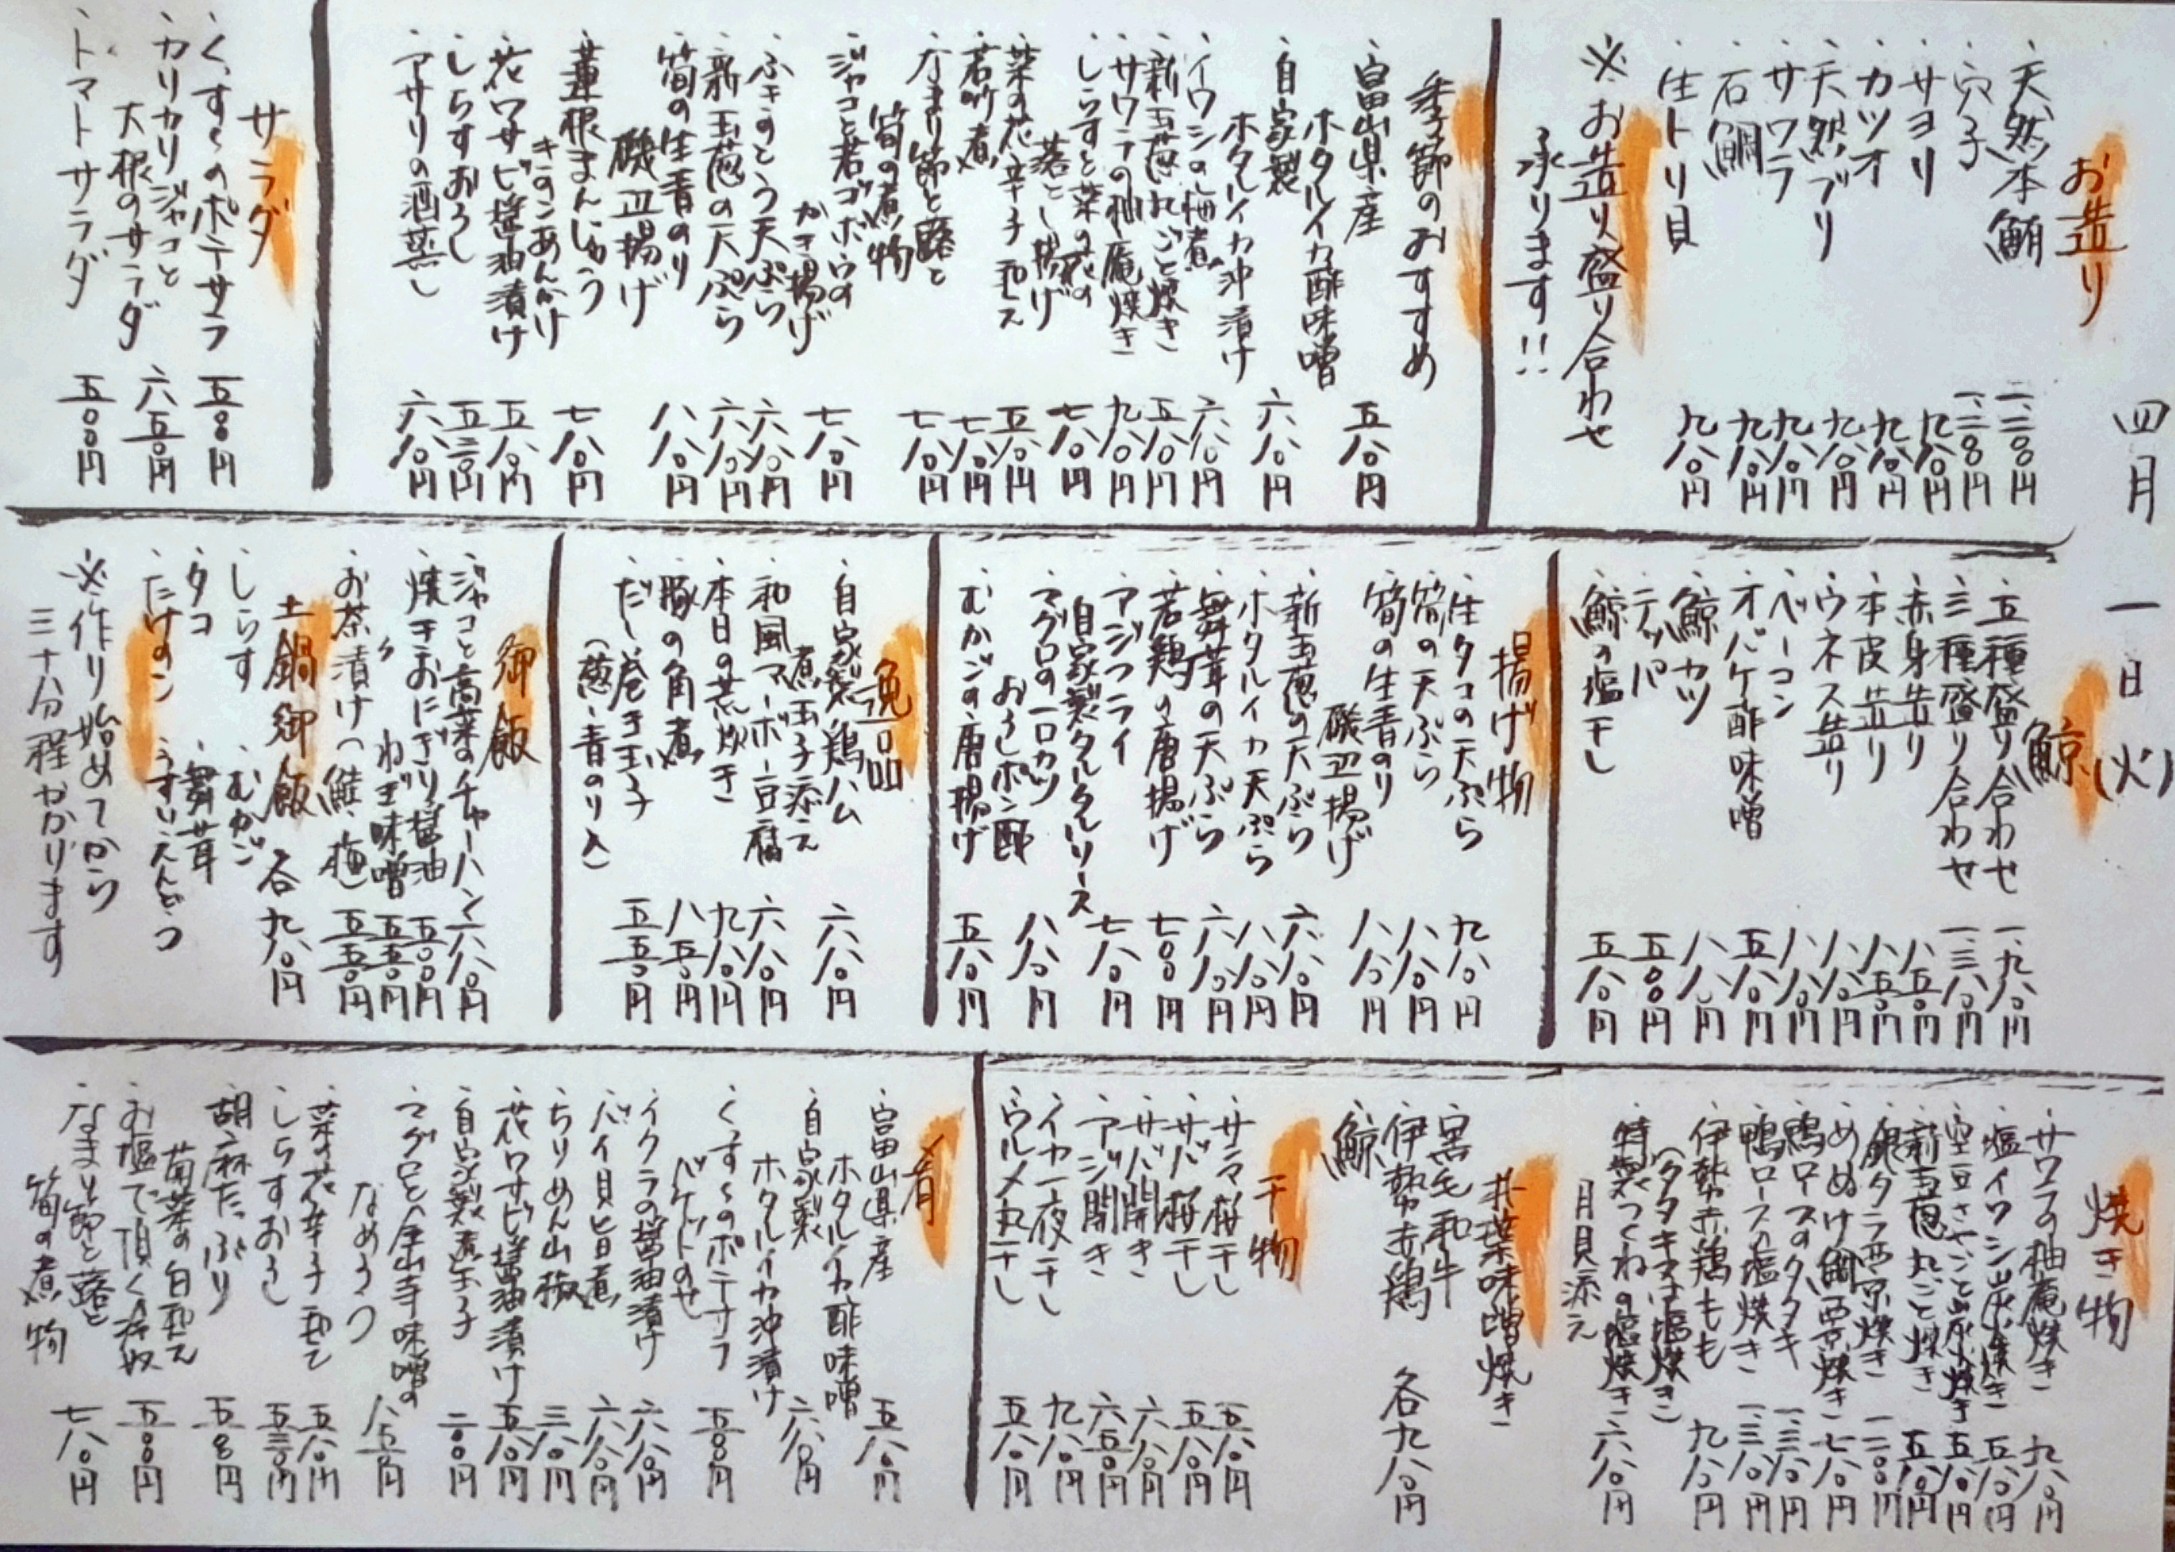 四月一日(火)
お造り
・天然本鮪 一、二八〇円
・穴子 一、二八〇円
・サヨリ 九八〇円
・カツオ 九八〇円
・天然ブリ 九八〇円
・サワラ 九八〇円
・石鯛 九八〇円
・生トリ貝 九八〇円
※お造り盛り合わせ
承ります!!
季節のおすすめ
・富山県産
ホタルイカ酢味噌 五八〇円
・自家製
ホタルイカ沖漬け 六八〇円
・イワシの梅煮 六八〇円
・新玉葱丸ごと焼き 五八〇円
・サワラの柚庵焼き 九八〇円
・しらすと菜の花の
落とし揚げ 七八〇円
・菜の花辛子和え 五八〇円
・若竹煮 七八〇円
・なまり節と蕗と
筍の煮物 七八〇円
・ジャコと若ゴボウの
かき揚げ 七八〇円
・ふきのとう天ぷら 六八〇円
・新玉葱の天ぷら 六八〇円
・筍の生青のり
磯辺揚げ 八八〇円
・蓮根まんじゅう
キノコあんかけ 七八〇円
・花ワサビ醤油漬け 五八〇円
・しらすおろし 五三〇円
・アサリの酒蒸し 六八〇円
サラダ
・くずくのポテサラ 五八〇円
・カリカリジャコと
大根のサラダ 六五〇円
・トマトサラダ 五八〇円
鯨
・五種盛り合わせ 一、九八〇円
・三種盛り合わせ 一、三八〇円
・赤身造り 八五〇円
・本皮造り 八五〇円
・ウネス造り 八八〇円
・ベーコン 八八〇円
・オバケ酢味噌 五八〇円
・鯨カツ 八八〇円
・テッパ 五八〇円
・鯨の塩干し 五八〇円
揚げ物
・生タコの天ぷら 九八〇円
・筍の天ぷら 八八〇円
・筍の生青のり
磯辺揚げ 八八〇円
・新玉葱の天ぷら 六八〇円
・ホタルイカ天ぷら 八八〇円
・舞茸の天ぷら 六八〇円
・若鶏の唐揚げ 七〇〇円
・アジフライ
自家製タルタルソース 七八〇円
・マグロの一口カツ
おろしポン酢 八八〇円
・むかごの唐揚げ 五八〇円
逸品
・自家製鶏ハム
煮玉子添え 六八〇円
・和風マーボー豆腐 六八〇円
・本日の荒炊き 九八〇円
・豚の角煮 八五〇円
・だし巻き玉子 五五〇円
(葱・青のり入)
御飯
・ジャコと高菜のチャーハン 六八〇円
・焼きおにぎり醤油 五〇〇円
・〃 ねぎ味噌 五五〇円
・お茶漬け(鮭・梅) 五五〇円
土鍋御飯 各九八〇円
・しらす ・むかご
・タコ ・舞茸
・たけのこ ・うすいえんどう
※作り始めてから
三十分程かかります
焼き物
・サワラの柚庵焼き 九八〇円
・塩イワシ炭焼き 五八〇円
・空豆さやごと炭火焼き 五八〇円
・新玉葱丸ごと焼き 五八〇円
・銀ダラ西京焼き 一、二〇〇円
・めぬけ鯛西京焼き 七八〇円
・鴨ロースのタタキ 一、三八〇円
・鴨ロースの塩焼き 一、三八〇円
・伊勢赤鶏もも 九八〇円
(タタキ又は塩焼き)
・特製つくねの塩焼き 六八〇円
月見添え
朴葉味噌焼き
・黒毛和牛
・伊勢赤鶏 各九八〇円
・鯨
干物
・サンマ桜干し 五八〇円
・サバ桜干し 五八〇円
・サバ開き 六八〇円
・アジ開き 六五〇円
・イカ一夜干し 九八〇円
・ウルメ丸干し 五八〇円
肴
・富山県産
ホタルイカ酢味噌 五八〇円
・自家製
ホタルイカ沖漬け 六八〇円
・くずくのポテサラ
バケットのせ 五八〇円
・イクラの醤油漬け 六八〇円
・バイ貝旨煮 六八〇円
・ちりめん山椒 三八〇円
・花ワサビ醤油漬け 五八〇円
・自家製煮玉子 二〇〇円
・マグロと金山寺味噌の
なめろう 八五〇円
・菜の花辛子和え 五八〇円
・しらすおろし 五三〇円
・胡麻たっぷり
菊菜の白和え 五八〇円
・お塩で頂く冷奴 五〇〇円
・なまり節と蕗と
筍の煮物 七八〇円